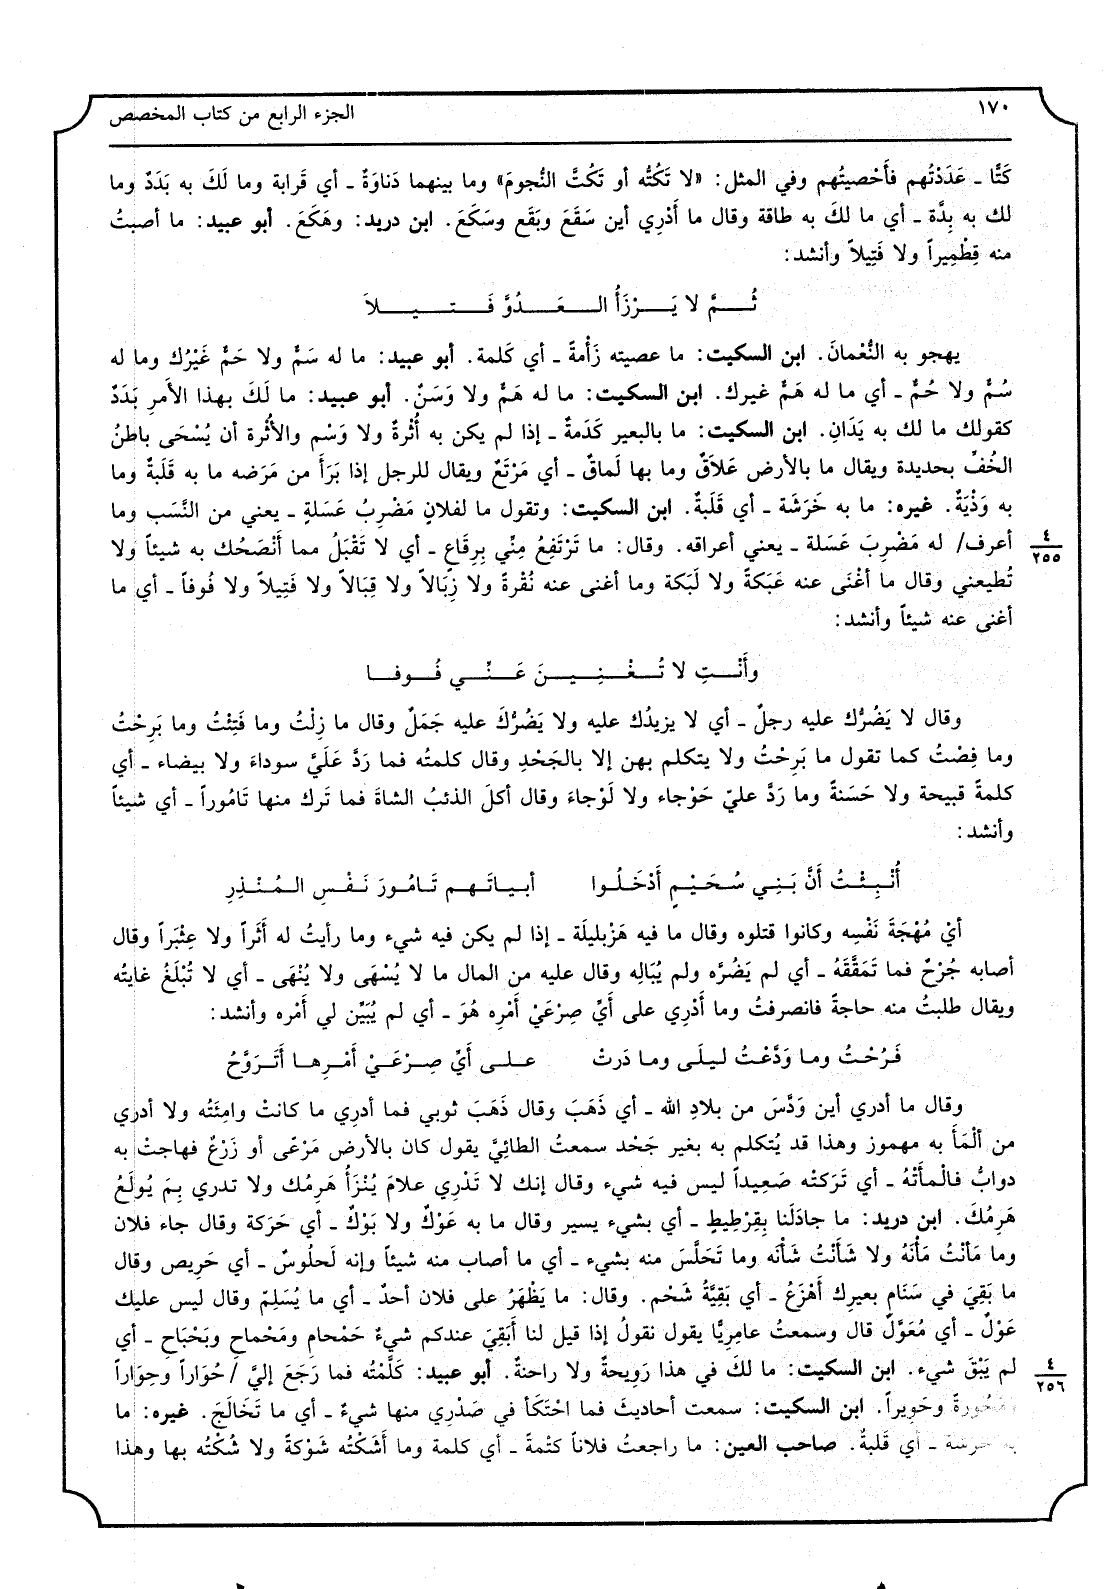 ١٧٠
الجزء الرابع من كتاب المخصص
كَتًّا ـ عَدَدْتُهم فأَحْصيتُهم وفي المثل: «لا تَكُتُّه أو تَكُتَّ النُّجومَ» وما بينهما دَناوَةٌ ـ أي قَرابة وما لَكَ به بَدَدٌ وما
لك به بِدَّة ـ أي ما لكَ به طاقة وقال ما أَدْرِي أين سَقَعَ وبَقَع وسَكَعَ. ابن دريد: وهَكَعَ. أبو عبيد: ما أصبتُ
منه قِطْمِيراً ولا فَتِيلاً وأنشد:
ثُمَّ لا يَرْزَأُ العَدُوَّ فَتيلاَ
يهجو به النُّعْمانَ. ابن السكيت: ما عصيته زَأْمةً ـ أي كَلمة. أبو عبيد: ما له سَمٌّ ولا حَمٌّ غَيْرُك وما له
سُمٌّ ولا حُمٌّ ـ أي ما له هَمٌّ غيرك. ابن السكيت: ما له هَمٌّ ولا وَسَنٌ. أبو عبيد: ما لَكَ بهذا الأمرِ بَدَدٌ
كقولك ما لك به يَدَانِ. ابن السكيت: ما بالبعير كَدَمةٌ ـ إذا لم يكن به أُثْرةٌ ولا وَسْم والأُثْرة أن يُسْحَى باطنُ
الخُفِّ بحديدة ويقال ما بالأرض عَلاَقٌ وما بها لَماقٌ ـ أي مَرْتَعٌ ويقال للرجل إذا بَرَأَ من مَرَضه ما به قَلَبةٌ وما
به وَذْيَةٌ. غيره: ما به خَرَشَة ـ أي قَلَبةٌ. ابن السكيت: وتقول ما لفلانٍ مَضْرِبُ عَسَلةٍ ـ يعني من النَّسَب وما
أعرف/ له مَضْرِبَ عَسَلة ـ يعني أعراقه. وقال: ما تَرْتَقِعُ مِنِّي بِرِقَاعٍ ـ أي لا تَقْبَلُ مما أَنْصَحُك به شيئاً ولا
٤
٢٥٥
تُطيعني وقال ما أغْنَى عنه عَبَكةً ولا لَبَكة وما أغنى عنه نُقْرةً ولا زِبَالاً ولا قِبَالاً ولا فَتِيلاً ولا فُوفاً ـ أي ما
أغنى عنه شيئاً وأنشد:
وأَنْتِ لا تُغْنِينَ عَنِّي فُوفا
وقال لا يَضُرُّك عليه رجلٌ ـ أي لا يزيدُك عليه ولا يَضُرُّكَ عليه جَمَلٌ وقال ما زِلْتُ وما فَتِئْتُ وما بَرِحْتُ
وما فِصْتُ كما تقول ما بَرِحْتُ ولا يتكلم بهن إلا بالجَحْدِ وقال كلمتُه فما رَدَّ عَلَيَّ سوداءَ ولا بيضاء ـ أي
كلمةً قبيحة ولا حَسَنةً وما رَدَّ عليّ حَوْجاء ولا لَوْجاءَ وقال أكلَ الذئبُ الشاةَ فما تَرك منها تَامُوراً ـ أي شيئاً
وأنشد:
أُنْبِئْتُ أَنَّ بَنِي سُحَيْمٍ أَدْخَلُوا أبياتَهم تَامُورَ نَفْسِ المُنْذِرِ
أيْ مُهْجَةَ نَفْسِه وكانوا قتلوه وقال ما فيه هَزْبليلَة ـ إذا لم يكن فيه شيء وما رأيتُ له أَثَراً ولا عِثْيَراً وقال
أصابه جُرْحٌ فما تَمَقَّقَهُ ـ أي لم يَضُرَّه ولم يُبَالِه وقال عليه من المال ما لا يُسْهَى ولا يُنْهَى ـ أي لا تُبْلَغُ غايتُه
ويقال طلبتُ منه حاجةً فانصرفتُ وما أدْرِي على أيِّ صِرْعَيْ أمْرِه هُوَ ـ أي لم يُبَيِّن لي أمْره وأنشد:
فَرُحْتُ وما وَدَّعْتُ ليلَى وما دَرتْ على أيِّ صِرْعَيْ أمْرِها أَتَرَوَّحُ
وقال ما أدري أين وَدَّسَ من بلادِ الله ـ أي ذَهَبَ وقال ذَهَبَ ثوبي فما أدرِي ما كانتْ وامِئَتُه ولا أدري
من أَلْمَأَ به مهموز وهذا قد يُتكلم به بغير جَحْد سمعتُ الطائِيَّ يقول كان بالأرضِ مَرْعًى أو زَرْعٌ فهاجتْ به
دوابُّ فالْمأَتْهُ ـ أي تَرَكتْه صَعِيداً ليس فيه شيء وقال إنك لا تَدْرِي علامَ يُنْزَأُ هَرِمُك ولا تدري بِمَ يُولَعُ
هَرِمُكَ. ابن دريد: ما جادَلَنا بِقِرْطِيطٍ ـ أي بشيء يسير وقال ما به عَوْكٌ ولا بَوْكٌ ـ أي حَرَكة وقال جاء فلان
وما مَأنْتُ مَأْنَهُ ولا شَأَنْتُ شَأْنَه وما تَحَلَّسَ منه بشيء ـ أي ما أصاب منه شيئاً وإنه لَحلُوسٌ ـ أي حَرِيص وقال
ما بَقِيَ في سَنَامِ بعيرِك أَهْزَعُ ـ أي بَقِيَّةُ شَحْم. وقال: ما يَظْهَرُ على فلان أحدٌ ـ أي ما يُسَلِمّ وقال ليس عليك
عَوْلٌ ـ أي مُعَوَّلٌ قال وسمعتُ عامِرِيًّا يقول نقولُ إذا قيل لنا أَبَقِيَ عندكم شيءٌ حَمْحامِ ومَحْماحِ وبَحْبَاحِ ـ أي
لم يَبْقَ شيء. ابن السكيت: ما لكَ في هذا رَوِيحةٌ ولا راحنةٌ. أبو عبيد: كَلَّمْتُه فما رَجَعَ إليَّ /حُوَاراً وحِوَاراً
٤
٢٥٦
ومَحُورةً وحَوِيراً. ابن السكيت: سمعت أحاديثَ فما احْتَكَأ في صَدْرِي منها شيءٌ ـ أي ما تَخَالَجَ. غيره: ما
به خرشة ـ أي قَلَبةٌ. صاحب العين: ما راجعتُ فلاناً كَتْمةً ـ أي كلمة وما أَشَكْتُه شَوْكةً ولا شُكْتُه بها وهذا